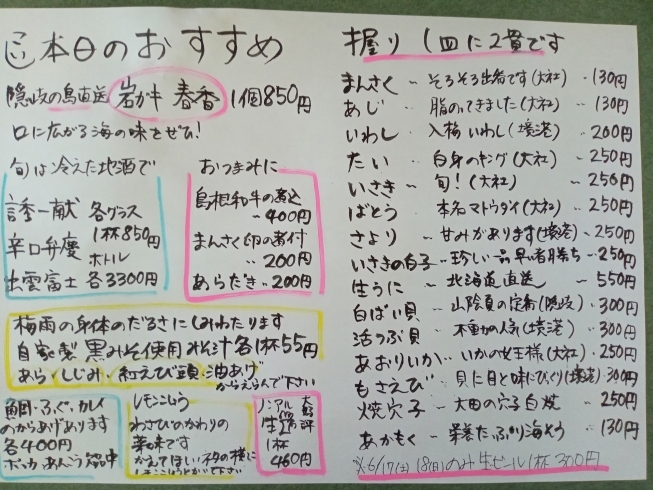 本日のおすすめ
隠岐の島直送 岩がキ 春香 1個850円
口に広がる海の味をぜひ!
旬は冷えた地酒で
誘一献 各グラス
辛口弁慶 1杯850円
出雲富士 ボトル各3300円
おつまみに
島根和牛の煮込
~400円
まんさく卵の煮付
~200円
あらだき~200円
梅雨の身体のだるさにしみわたります
自家製黒みそ使用みそ汁各1杯55円
あら・しじみ・紅えび頭・油あげ
からえらんで下さい
鯛・ふぐ・カレイ
のからあげあります
各400円
レモンこしょう
わさびのかわりの
薬味です
ノンアル
生
1杯
460円
好評
握り 1皿に2貫です
まんさく ~ そろそろ出者です(大社) ・130円
あじ ~ 脂のってきました(大社) ~ 130円
いわし ~ 入梅いわし(境港) 200円
たい ~ 白身のキング(大社) ~ 250円
いさき ~ 旬!(大社) ~ 250円
ばとう 本名マトウダイ(大社) ~ 250円
さより ~ 甘みがあります(境港) ~ 250円
いさきの白子 ~ 珍しい一品早い者勝ち ~ 250円
生うに ~ 北海道直送 ~ 550円
白ばい貝 ~ 山陰貝の定番(隠岐) ・300円
活つぶ貝 ~ 不動の人気(境港) ・300円
あおりいか ~ いかの女王様(大社)・250円
もさえび ~ 見た目と味にびっくり(境港)・300円
焼穴子 ~ 大田の穴子白焼 ~ 250円
あかもく ~ 栄養たっぷり海そう ~ 130円
※6/17(土)18(日)のみ生ビール1杯300円